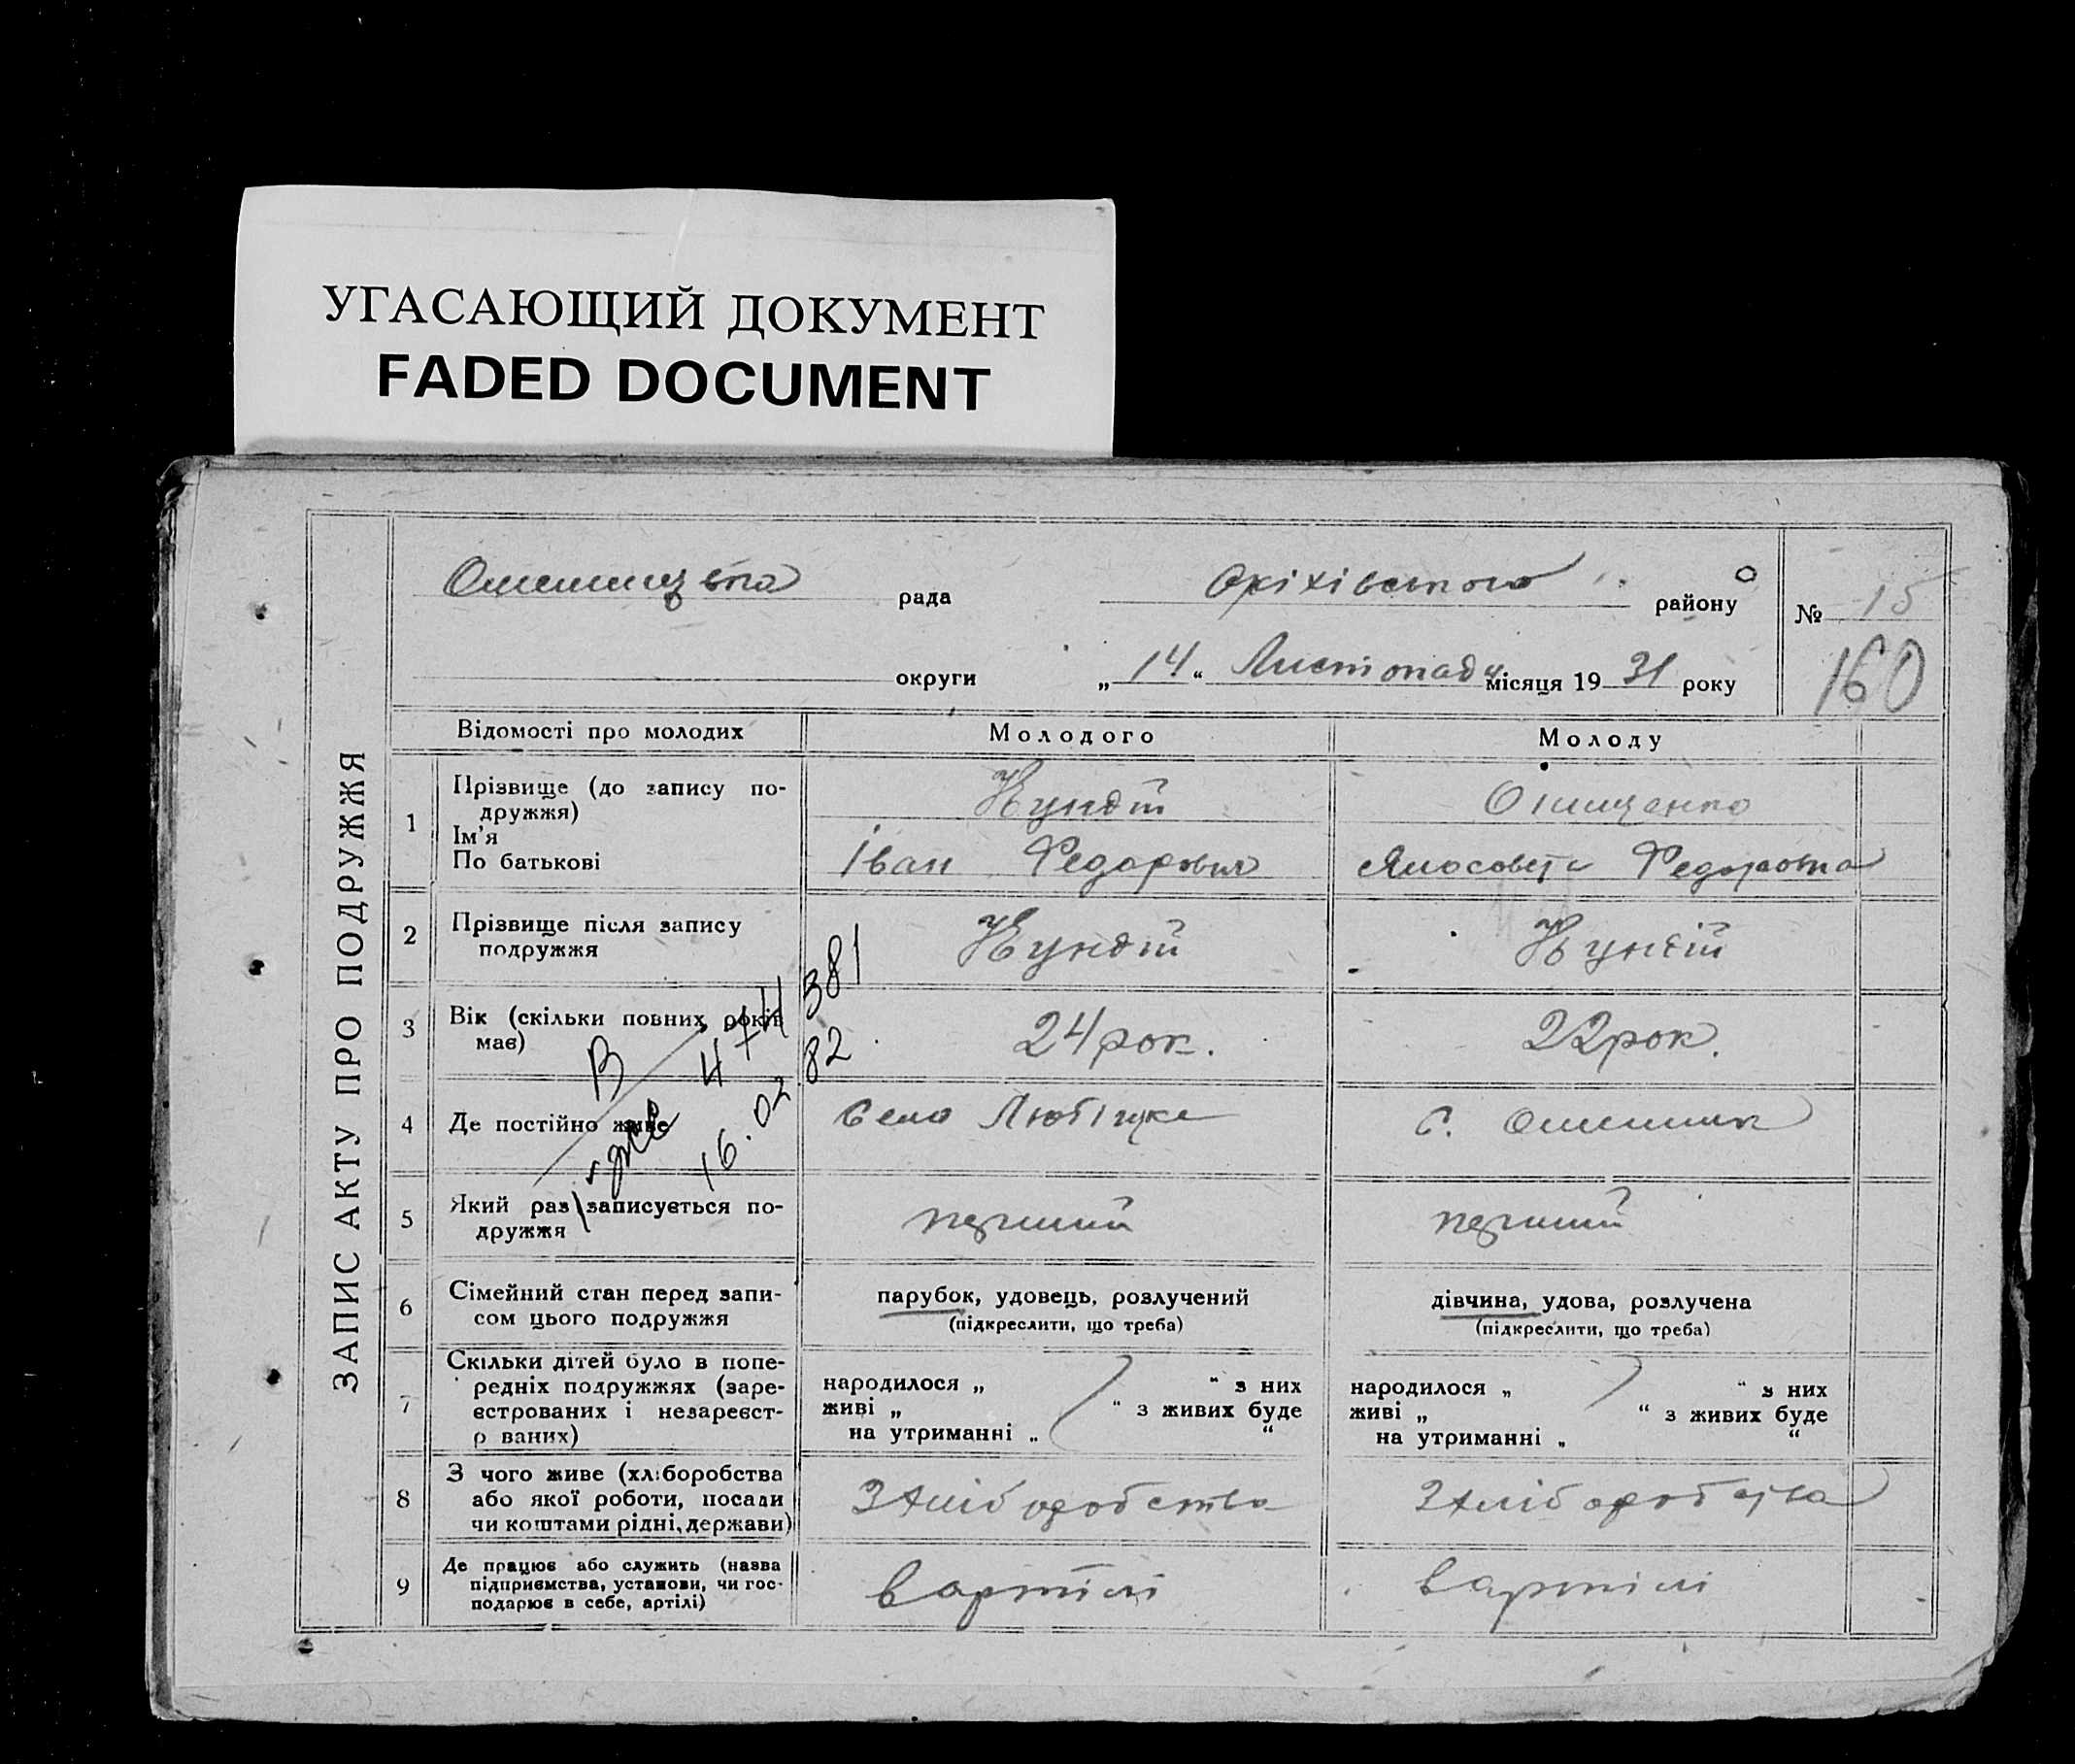 УГАСАЮЩИЙ ДОКУМЕНТ
FADED DOCUMENT
ЗАПИС АКТУ ПРО ПОДРУЖЖЯ
рада Оріхівського району № 15
округи „14“ Листопаду місяця 1931 року 160
Відомості про молодих Молодого Молоду
1 Прізвище (до запису по-
дружжя)
Ім'я
По батькові
Кундій Оніщенко
Іван Федорович Федоровна
2 Прізвище після запису
подружжя
Кундій Кундій
381
3 Вік (скільки повних років
має)
24 рок. 22 рок.
В 4 74 82
4 Де постійно живе
Село Любіцке с.
16.02
5 Який раз записується по-
дружжя
перший перший
6 Сімейний стан перед запи-
сом цього подружжя
парубок, удовець, розлучений
(підкреслити, що треба)
дівчина, удова, розлучена
(підкреслити, що треба)
7 Скільки дітей було в попе-
редніх подружжях (заре-
єстрованих і незареєст-
р ваних)
народилося „ “ з них
живі „ “ з живих буде
на утриманні „ “
народилося „ “ з них
живі „ “ з живих буде
на утриманні „ “
8 З чого живе (хліборобства
або якої роботи, посади
чи коштами рідні, держави)
З хліборобства З хліборобства
9 Де працює або служить (назва
підприємства, установи, чи гос-
подарює в себе, артілі)
в артілі в артілі